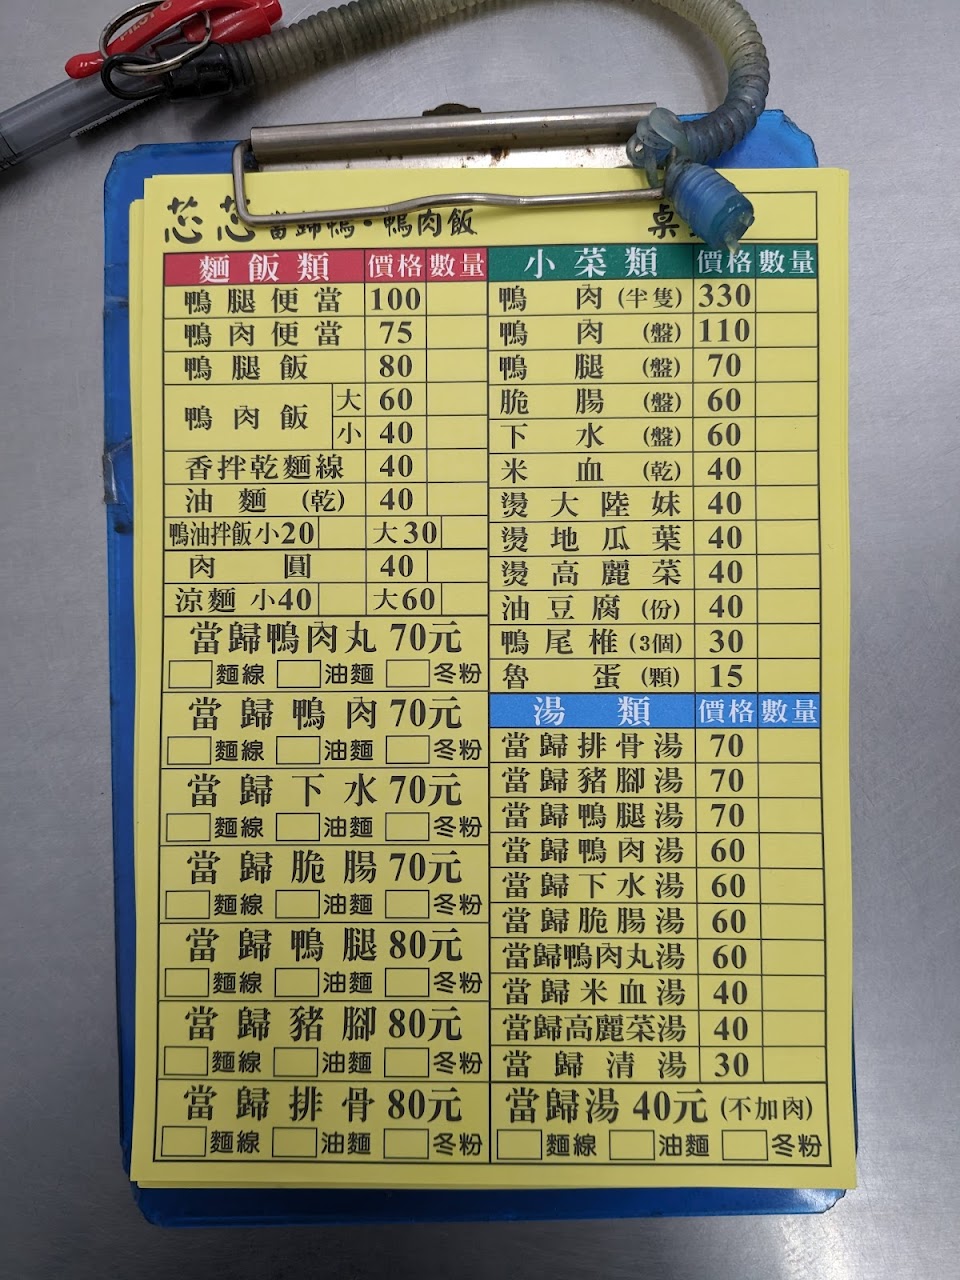 PILOT
芯芯當歸鴨·鴨肉飯 桌
麵飯類 價格 數量
鴨腿便當 100
鴨肉便當 75
鴨腿飯 80
鴨肉飯 大 60
小 40
香拌乾麵線 40
油麵 (乾) 40
鴨油拌飯 小20 大30
肉圓 40
涼麵 小40 大60
當歸鴨肉丸 70元
麵線 油麵 冬粉
當歸鴨肉 70元
麵線 油麵 冬粉
當歸下水 70元
麵線 油麵 冬粉
當歸脆腸 70元
麵線 油麵 冬粉
當歸鴨腿 80元
麵線 油麵 冬粉
當歸豬腳 80元
麵線 油麵 冬粉
當歸排骨 80元
麵線 油麵 冬粉
小菜類 價格 數量
鴨肉 (半隻) 330
鴨肉 (盤) 110
鴨腿 (盤) 70
脆腸 (盤) 60
下水 (盤) 60
米血 (乾) 40
燙大陸妹 40
燙地瓜葉 40
燙高麗菜 40
油豆腐 (份) 40
鴨尾椎 (3個) 30
魯蛋 (顆) 15
湯類 價格 數量
當歸排骨湯 70
當歸豬腳湯 70
當歸鴨腿湯 70
當歸鴨肉湯 60
當歸下水湯 60
當歸脆腸湯 60
當歸鴨肉丸湯 60
當歸米血湯 40
當歸高麗菜湯 40
當歸清湯 30
當歸湯 40元 (不加肉)
麵線 油麵 冬粉